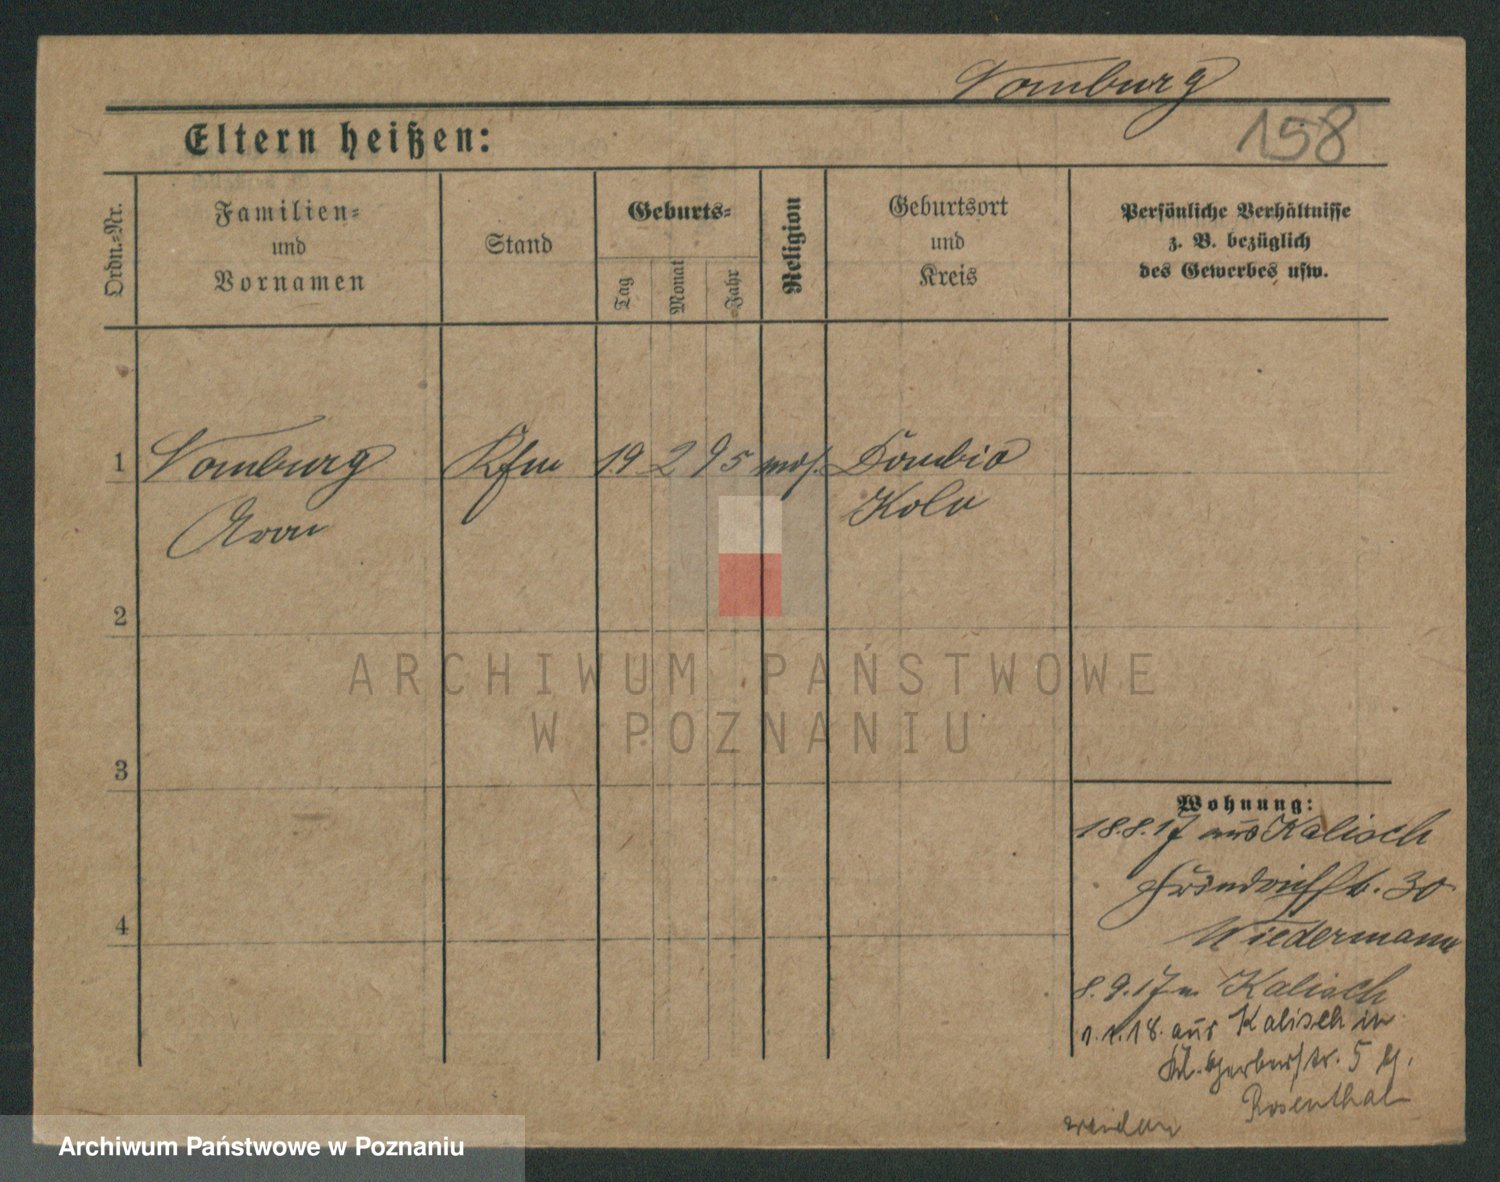 Tomburg
158
Eltern heißen:
Ordn.-Nr.
Familien-
und
Vornamen
Stand
Geburts-
Tag
Monat
Jahr
Religion
Geburtsort
und
Kreis
Persönliche Verhältnisse
z. B. bezüglich
des Gewerbes usw.
1
Tomburg
Aron
Kfm
19 2 95
mos.
Dombio
Kolo
2
3
4
ARCHIWUM PAŃSTWOWE
W POZNANIU
Wohnung:
18.8.17 aus Kalisch
30
Wiedermann
8.9.17 n Kalisch
1.1.18. aus Kalisch in
Kl. Gerberstr. 5 b.
Rosenthal
Archiwum Państwowe w Poznaniu